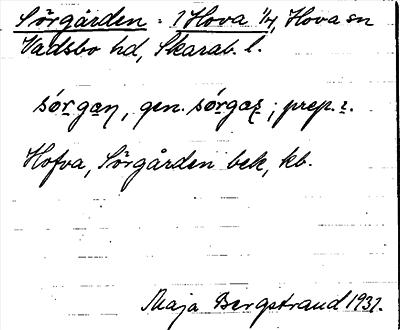 Sörgården - 1 Hova 1/4, Hova sn
Vadsbo hd, Skarab. l.
sórgan, gen. sórgas; prep. i.
Hofva, Sörgården bek, kb.
Maja Bergstrand 1937.